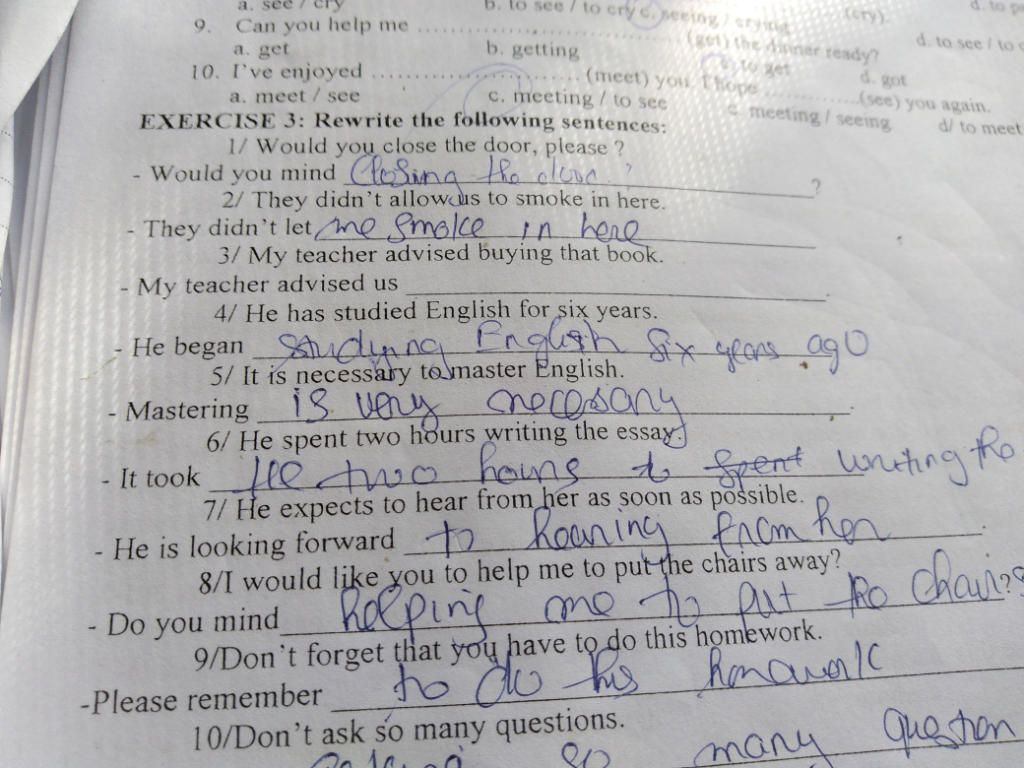 a. see / cry b. to see / to cry c. seeing / crying (cry). d. to
9. Can you help me .................... (get) the dinner ready? d. to see / to
a. get b. getting c. to get d. got
10. I've enjoyed .................... (meet) you. I hope .................... (see) you again.
a. meet / see c. meeting / to see c meeting / seeing d/ to meet
EXERCISE 3: Rewrite the following sentences:
1/ Would you close the door, please ?
- Would you mind Closing the door ? ?
2/ They didn't allow us to smoke in here.
- They didn't let me smoke in here
3/ My teacher advised buying that book.
- My teacher advised us .
4/ He has studied English for six years.
- He began studying English six years ago
5/ It is necessary to master English.
- Mastering is very necessary .
6/ He spent two hours writing the essay.
- It took He two hours to spent writing the
7/ He expects to hear from her as soon as possible.
- He is looking forward to hearing from her .
8/I would like you to help me to put the chairs away?
- Do you mind helping me to put the chair ?
9/Don't forget that you have to do this homework.
-Please remember to do this homework
10/Don't ask so many questions.
so many question